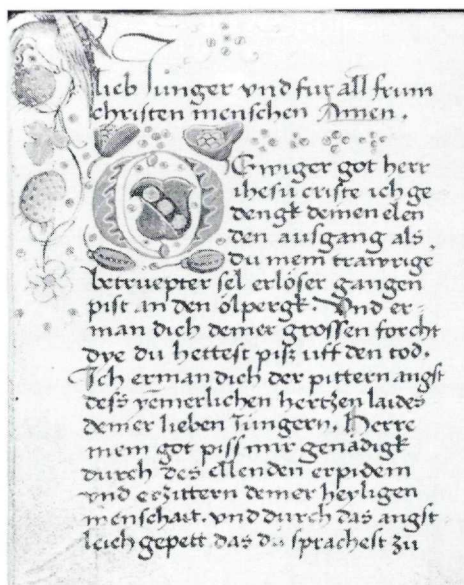 lieb Junger vnd fur all frum
christen menschen Amen.
O Ewiger got herr
ihesu criste ich ge
dengk deinen elen
den ausgang als
du mein trawrige
betruepter sel erlöser gangen
pist an den ölpergk. Vnd er-
man dich deiner grossen forcht
dye du hettest pisz uff den tod.
Ich erman dich der pittern angst
dess yemerlichen hertzen laides
deiner lieben Jungern. Herre
mein got piss mir genädigk
durch des ellenden erpidem
vnd erzittern deiner heyligen
menschait. vnd durch das angst
leich gepett das du sprachest zu